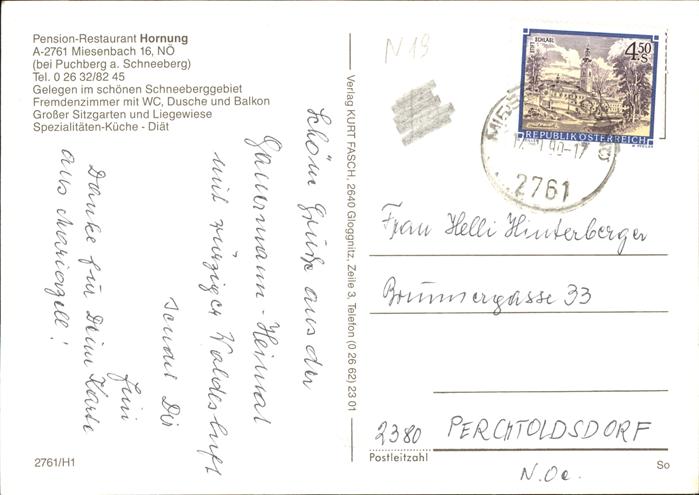 Pension-Restaurant Hornung
A-2761 Miesenbach 16, NÖ
(bei Puchberg a. Schneeberg)
Tel. 0 26 32/82 45
Gelegen im schönen Schneeberggebiet
Fremdenzimmer mit WC, Dusche und Balkon
Großer Sitzgarten und Liegewiese
Spezialitäten-Küche - Diät
Schöne Grüße aus der
Gauermann - Heimat
mit würziger Waldesluft
sendet Dir
Fini
Danke für Deine Karte
aus Mariazell!
2761/H1
Verlag KURT FASCH, 2640 Gloggnitz, Zeile 3, Telefon (0 26 62) 23 01
N 19
STIFT SCHLÄGL
4.50
S
REPUBLIK ÖSTERREICH
90-17
2761
Frau Helli Hinterberger
Brunnergasse 33
2380 PERCHTOLDSDORF
Postleitzahl
N.Oe.
So